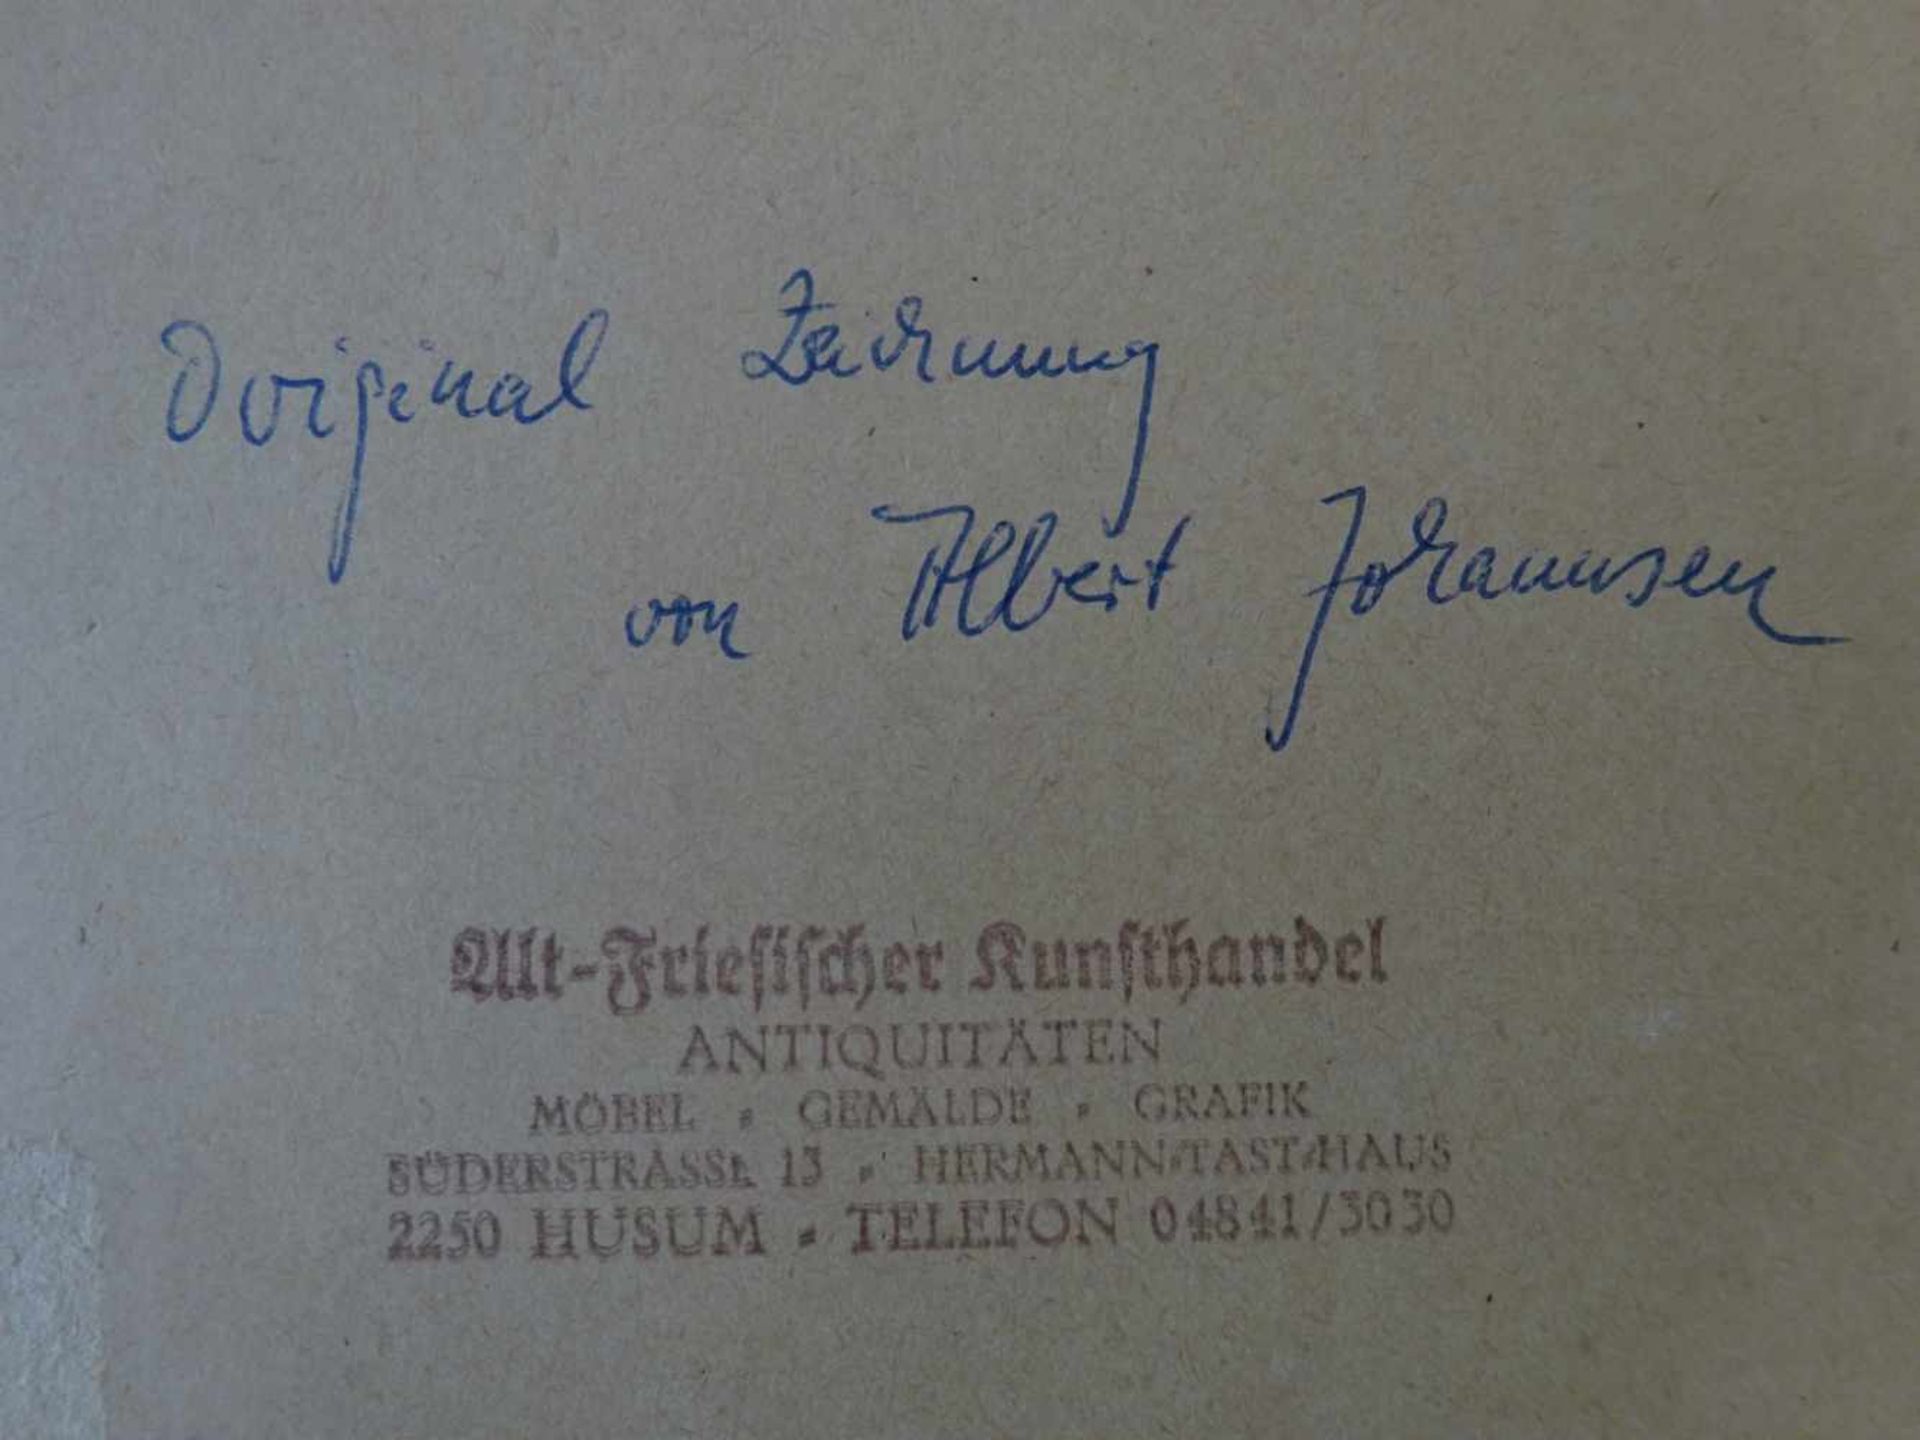 Original Zeichnung
von Albert Johannsen
Alt-Friesischer Kunsthandel
ANTIQUITÄTEN
MÖBEL - GEMÄLDE - GRAFIK
SÜDERSTRASSE 13 - HERMANN-TAST-HAUS
2250 HUSUM - TELEFON 04841/3030